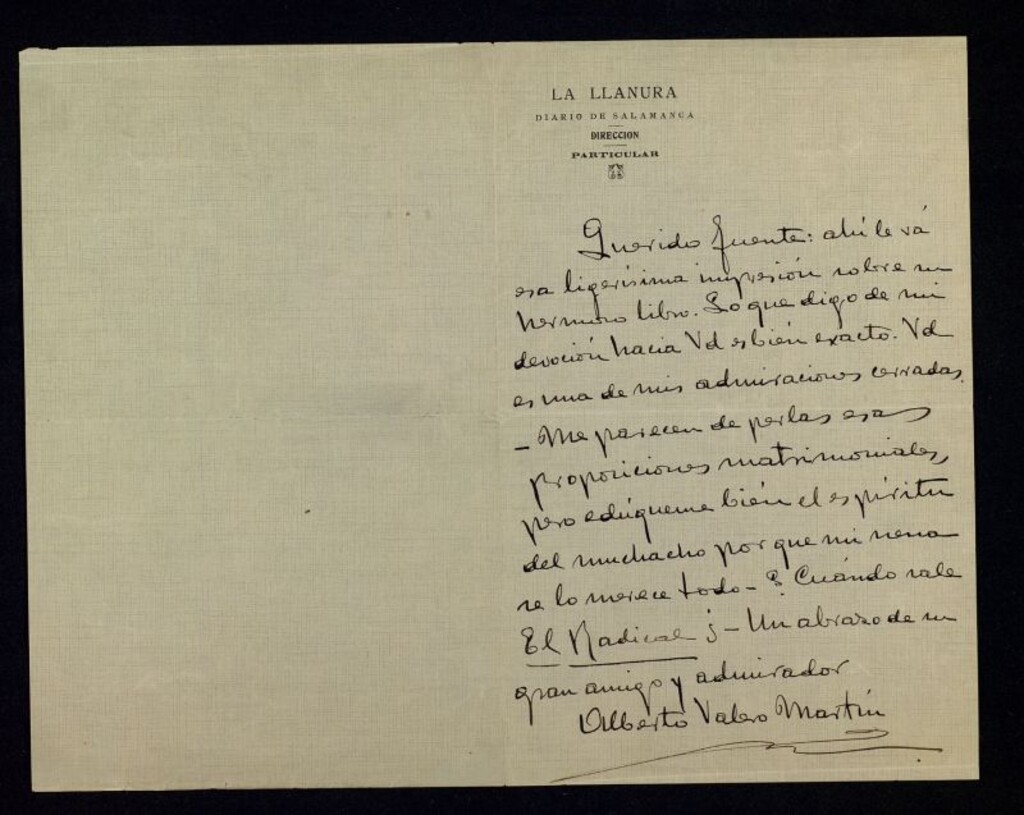 LA LLANURA
DIARIO DE SALAMANCA
DIRECCION
PARTICULAR
Querido fuente: ahí le vá
esa ligerísima impresión sobre su
hermoso libro. Lo que digo de mi
devoción hacia Vd es bién exacto. Vd
es una de mis admiraciones cerradas.
- Me parecen de perlas esas
proposiciones matrimoniales,
pero edúqueme bién el espíritu
del muchacho por que mi nena
se lo merece todo - ? Cuándo sale
El Radical ¿ - Un abrazo de su
gran amigo y admirador
Alberto Valero Martín